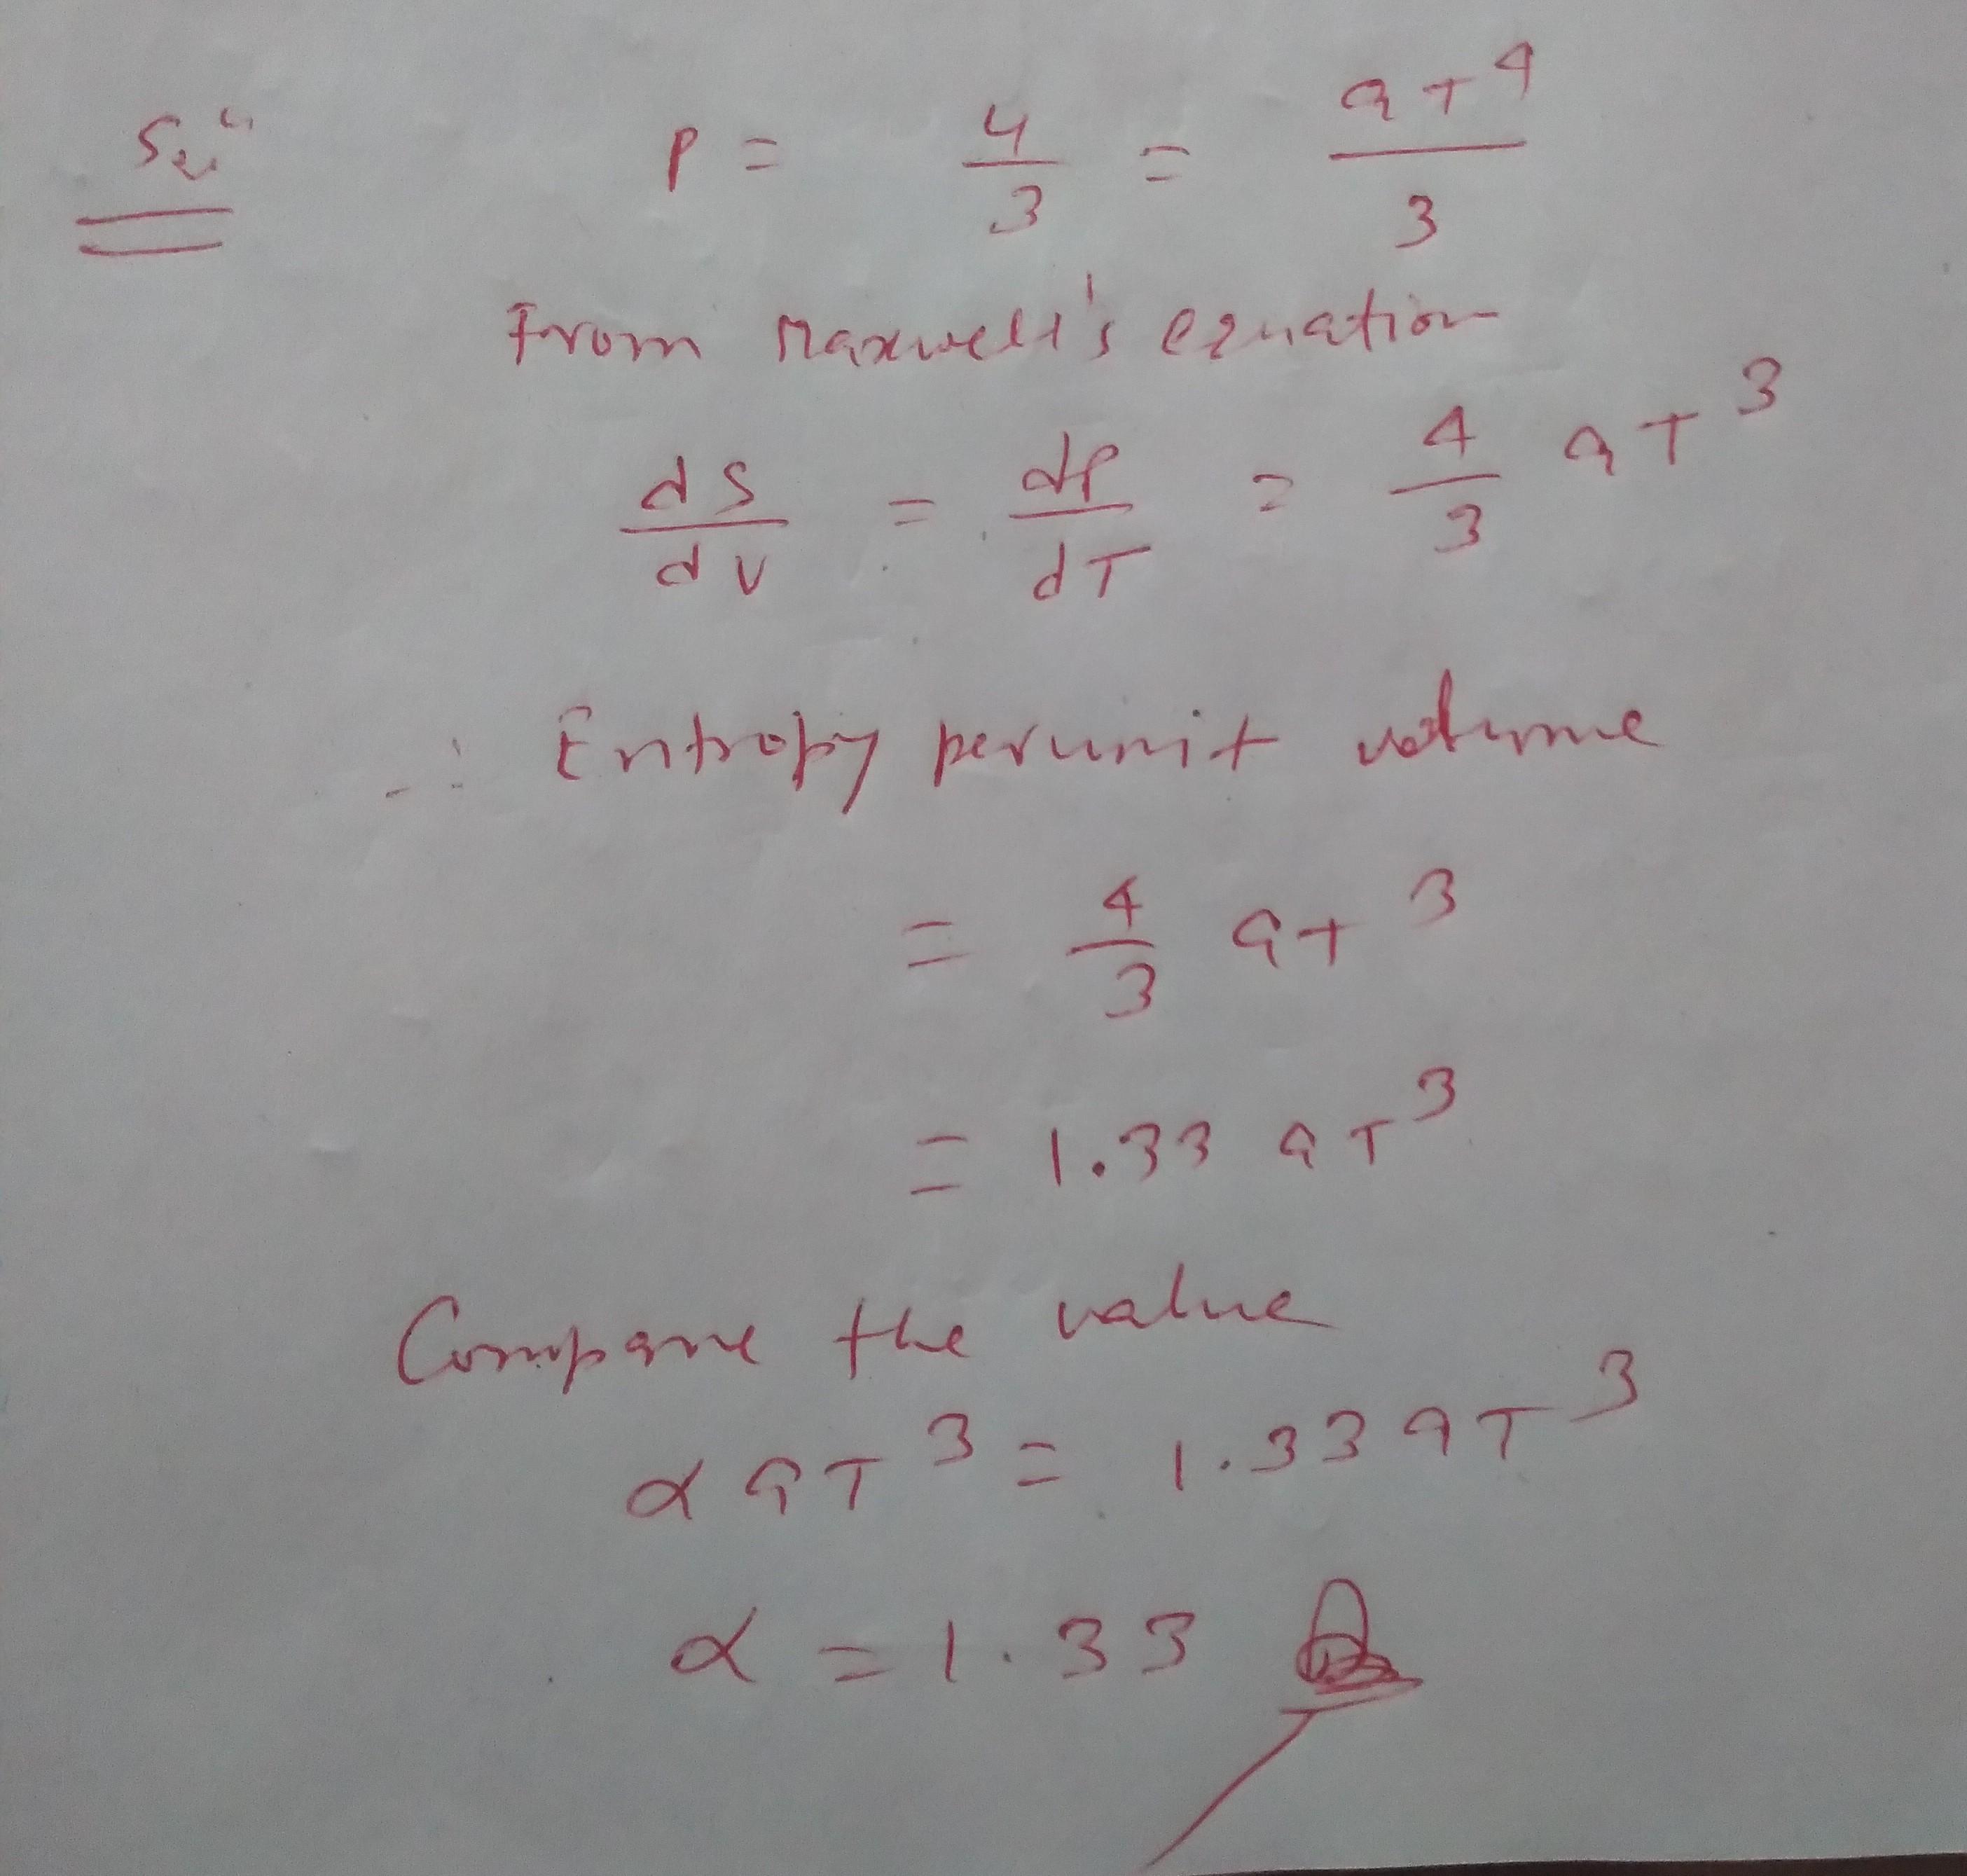 Sol"
P = 4/3 = aT^4/3
From Maxwell's equation
dS/dV = dP/dT = 4/3 aT^3
∴ Entropy per unit volume
= 4/3 aT^3
= 1.33 aT^3
Compare the value
α aT^3 = 1.33 aT^3
α = 1.33